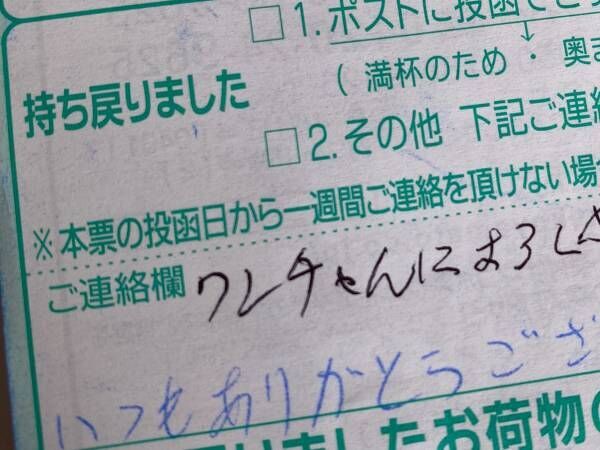 □1.ポストに投函でき
(満杯のため・奥ま
持ち戻りました
□2.その他 下記ご連絡
※本票の投函日から一週間ご連絡を頂けない場合
ご連絡欄 ワンチャんによろしく
いつもありがとうござ
ましたお荷物の